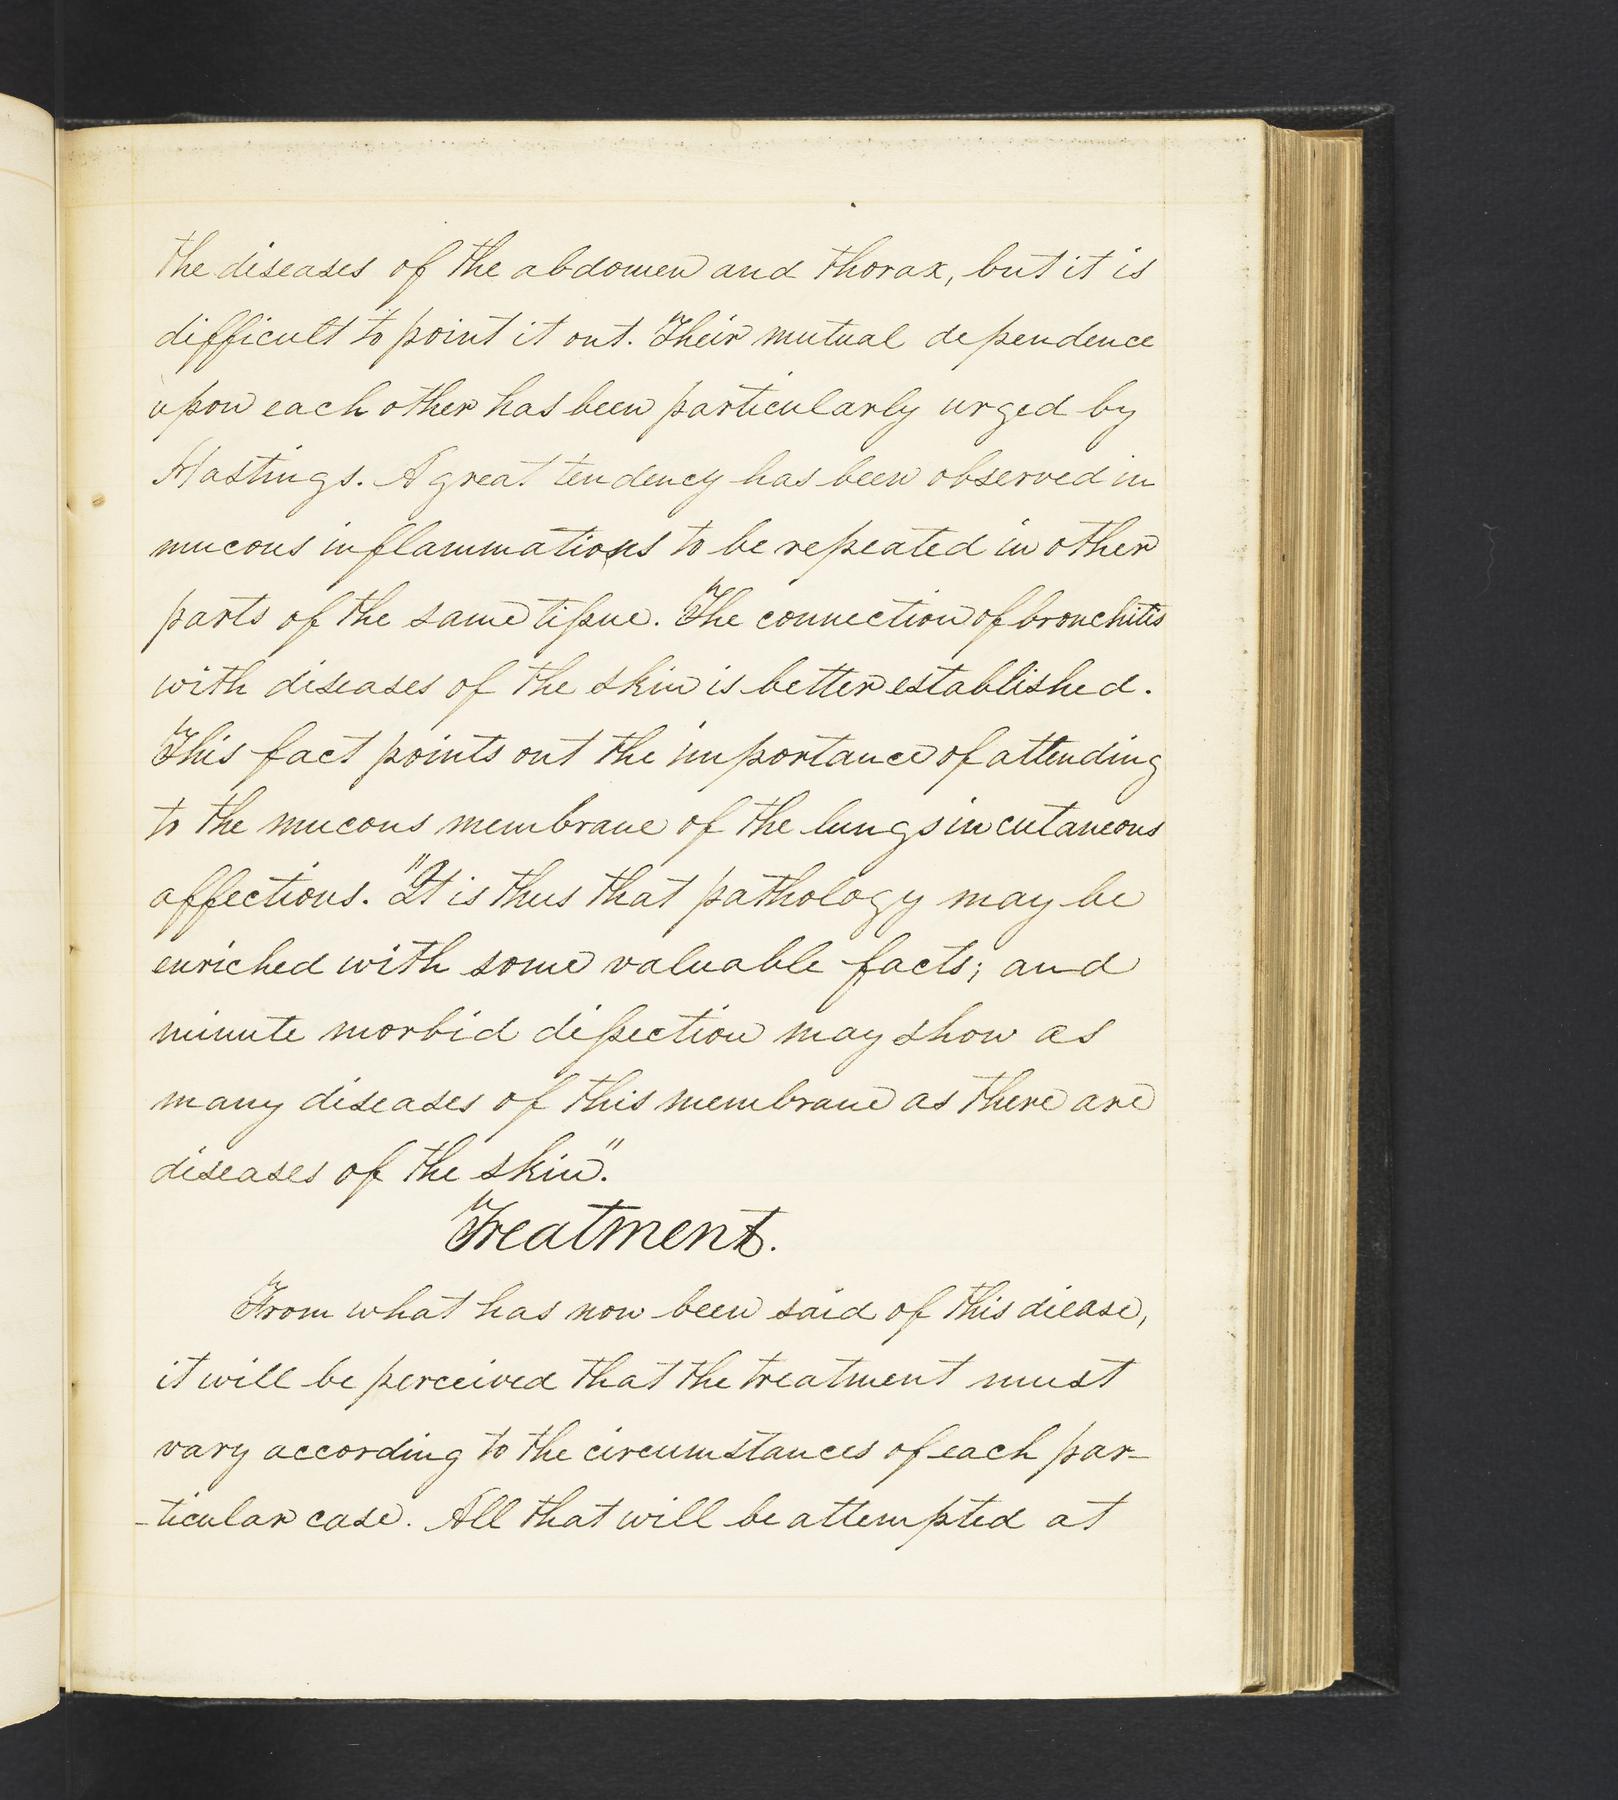 the diseases of the abdomen and thorax, but it is
difficult to point it out. Their mutual dependence
upon each other has been particularly urged by
Hastings. A great tendency has been observed in
mucous inflammations to be repeated in other
parts of the same tiſsue. The connection of bronchitis
with diseases of the skin is better established.
This fact points out the importance of attending
to the mucous membrane of the lungs in cutaneous
affections. "It is thus that pathology may be
enriched with some valuable facts; and
minute morbid diſsection may show as
many diseases of this membrane as there are
diseases of the skin".
Treatment.
From what has now been said of this diease,
it will be perceived that the treatment must
vary according to the circumstances of each par-
-ticular case. All that will be attempted at